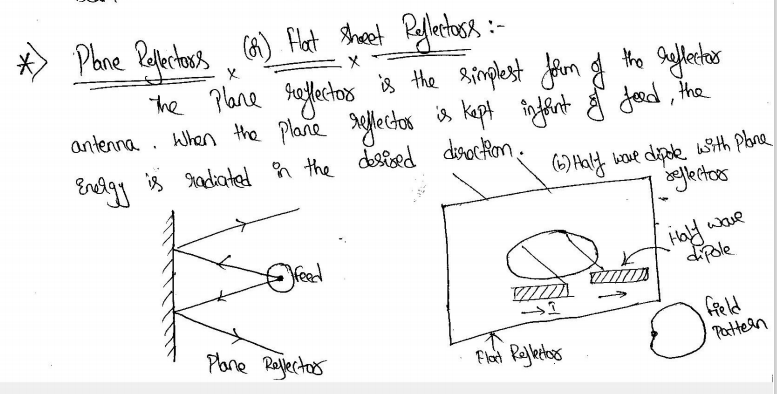 *> Plane Reflectors (or) Flat Sheet Reflectors :-
The Plane reflector is the simplest form of the reflector
antenna. When the Plane reflector is kept infront of feed, the
Energy is radiated in the desired direction.
(b) Half wave dipole with Plane
reflector
Half wave
dipole
Feed
I
Field
Pattern
Flat Reflector
Plane Reflector